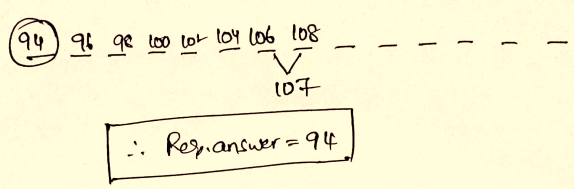 94 96 98 100 102 104 106 108 _ _ _ _ _ _ _
107
∴ Req. answer = 94